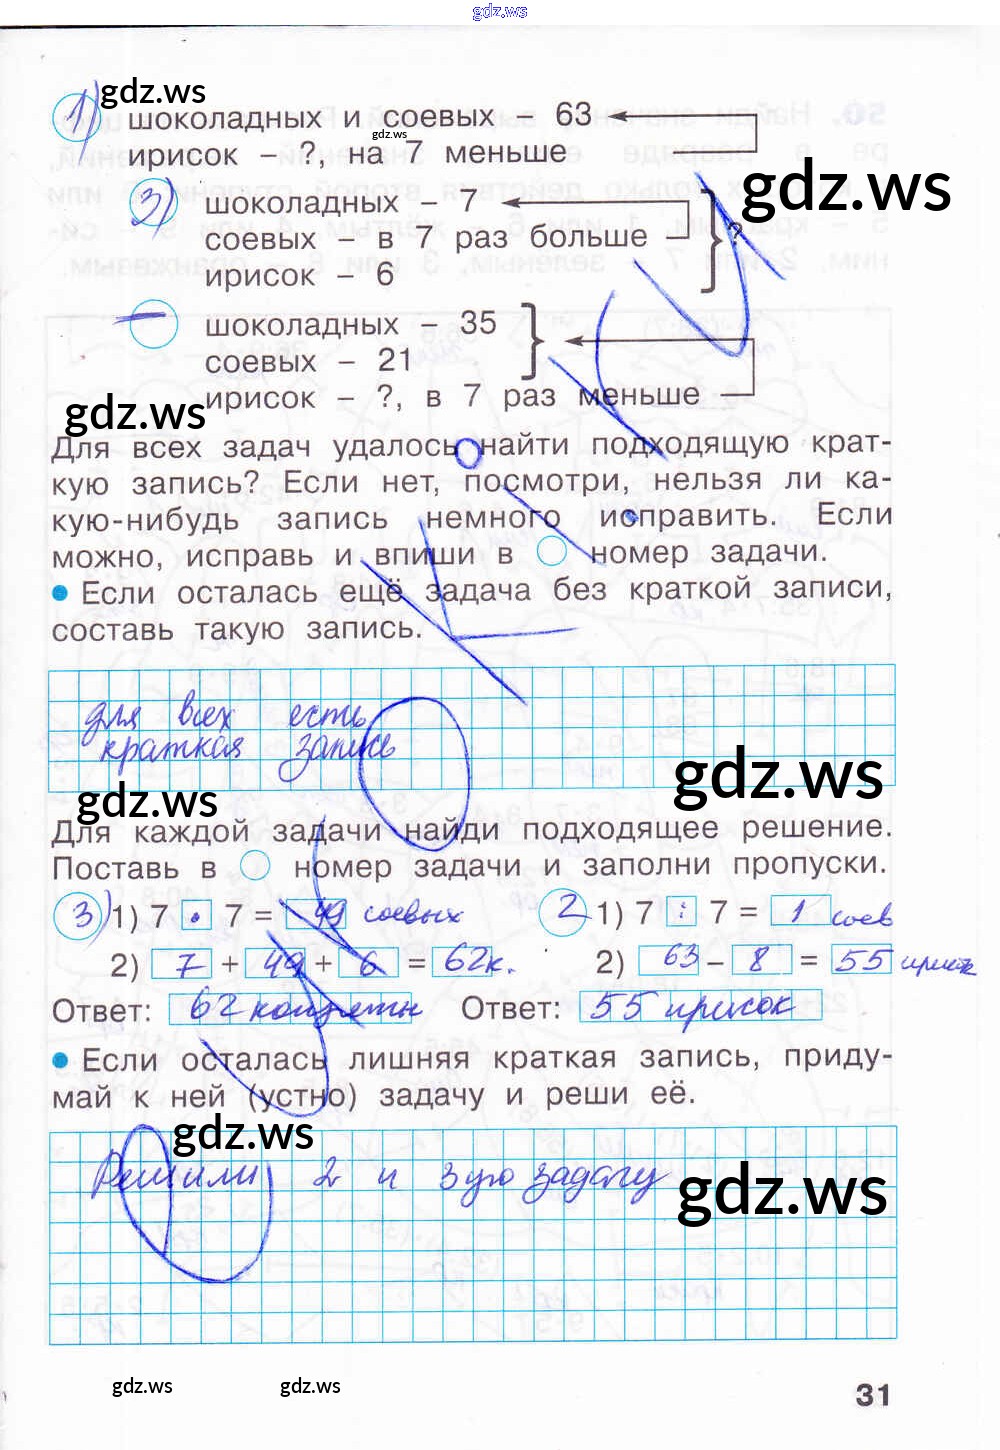 gdz.ws
gdz.ws
1) шоколадных и соевых – 63
gdz.ws
ирисок – ?, на 7 меньше
gdz.ws
3) шоколадных – 7
соевых – в 7 раз больше – ?
ирисок – 6
— шоколадных – 35
соевых – 21
ирисок – ?, в 7 раз меньше
gdz.ws
Для всех задач удалось найти подходящую крат-
кую запись? Если нет, посмотри, нельзя ли ка-
кую-нибудь запись немного исправить. Если
можно, исправь и впиши в номер задачи.
• Если осталась ещё задача без краткой записи,
составь такую запись.
для всех есть
краткая запись
gdz.ws
gdz.ws
Для каждой задачи найди подходящее решение.
Поставь в номер задачи и заполни пропуски.
3) 1) 7 • 7 = 49 соевых 2 1) 7 : 7 = 1 соев
2) 7 + 49 + 6 = 62к. 2) 63 – 8 = 55 ирисок
Ответ: 62 конфеты Ответ: 55 ирисок
• Если осталась лишняя краткая запись, приду-
май к ней (устно) задачу и реши её.
gdz.ws
Решили 2 и 3ую задачу
gdz.ws
gdz.ws gdz.ws
31